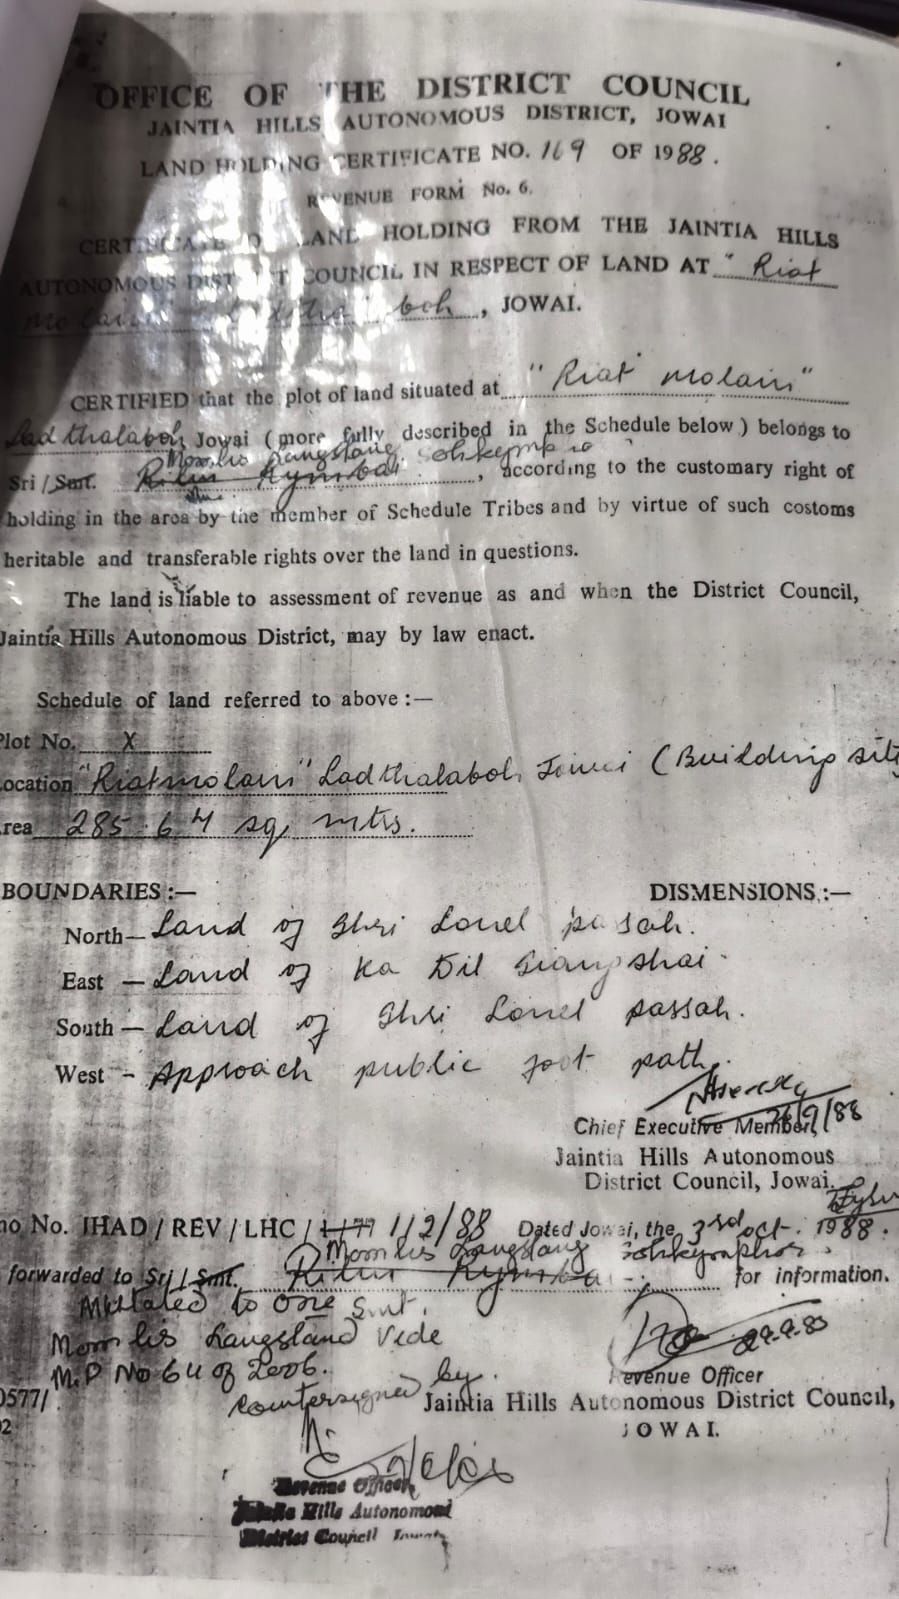 OFFICE OF THE DISTRICT COUNCIL
JAINTIA HILLS AUTONOMOUS DISTRICT, JOWAI
LAND HOLDING CERTIFICATE NO. 169 OF 1988.
REVENUE FORM No. 6.
CERTIFICATE OF LAND HOLDING FROM THE JAINTIA HILLS
AUTONOMOUS DISTRICT COUNCIL IN RESPECT OF LAND AT "Riat
boh, JOWAI.
CERTIFIED that the plot of land situated at "Riat molain"
Ladthalaboh Jowai (more fully described in the Schedule below) belongs to
Momlis Langstang
Sri/Smt. Rymbai, according to the customary right of
holding in the area by the member of Schedule Tribes and by virtue of such costoms
heritable and transferable rights over the land in questions.
The land is liable to assessment of revenue as and when the District Council,
Jaintia Hills Autonomous District, may by law enact.
Schedule of land referred to above :—
Plot No. X
ocation "Riatmolain" Ladthalaboh Jowai (Building site
rea 285.64 sq mtrs.
BOUNDARIES :— DISMENSIONS :—
North— Land of Shri Lonel passah.
East — Land of Ka Dil Siangshai
South — Land of Shri Lonel passah.
West - Approach public foot path.
26/9/88
Chief Executive Member,
Jaintia Hills Autonomous
District Council, Jowai.
no No. JHAD/REV/LHC/ 1/2/88 Dated Jowai, the 3rd oct. 1988.
Momlis Langstang
forwarded to Sri/Smt. Rymbai for information.
Mutated to one Smt.
Momlis Langstand Vide
M.P No 64 of 2006.
29.9.88
Revenue Officer
0577/ Countersigned by. Jaintia Hills Autonomous District Council,
02
JOWAI.
Revenue Officer
Jaintia Hills Autonomous
District Council Jowai